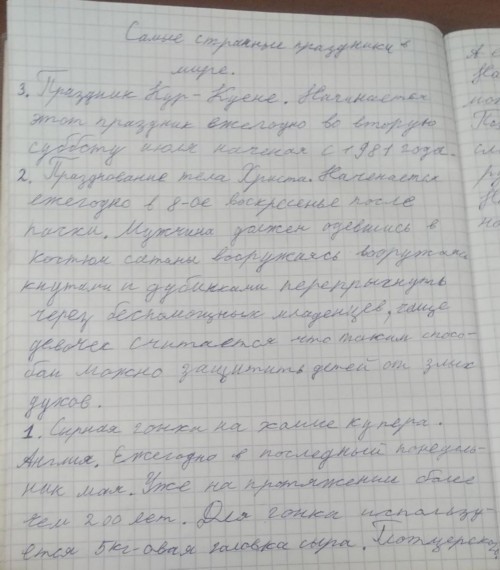 Самые странные праздники в
мире.
3. Праздник Кур-Куене. Начинается
этот праздник ежегодно во вторую
субботу июля начиная с 1981 года.
2. Празднование тела Христа. Начинается
ежегодно в 8-ое воскрсенье после
пасхи. Мужчина должен одевшись в
костюм сатаны вооружаясь
кнутами и дубинками перепрыгнуть
через беспомощных младенцев, чаще
девочек считается что таким спосо-
бом можно защитить детей от злых
духов.
1. Сырная гонка на холме купера.
Англия. Ежегодно в последный понедель-
ник мая. Уже на протяжении более
чем 200 лет. Для гонки использу-
ется 5кг-овая головка сыра.